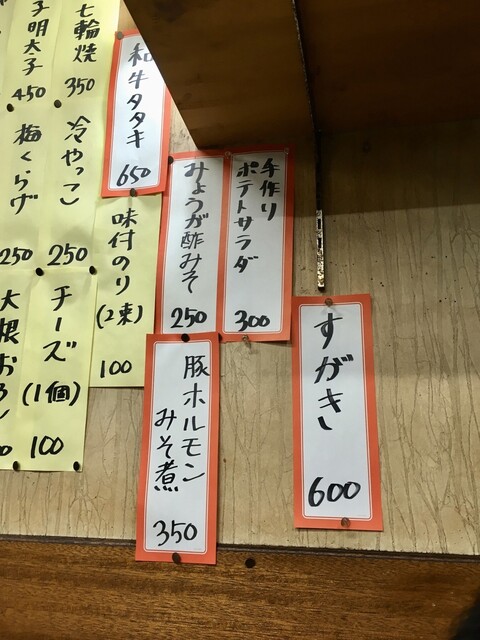 すがき
600
手作り
ポテトサラダ
300
みょうが酢みそ
250
豚ホルモン
みそ煮
350
和牛タタキ
650
味付のり
(2束)
100
七輪焼
350
冷やっこ
250
チーズ
(1個)
100
子明太子
450
梅くらげ
250
大根おろし